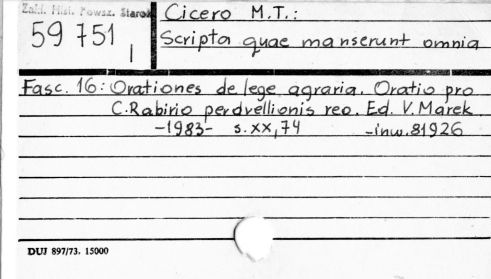 Zakł. Hist. Powsz. Starož
Cicero M.T.:
59 751 I
Scripta quae manserunt omnia
Fasc. 16: Orationes de lege agraria. Oratio pro
C. Rabirio perdvellionis reo. Ed. V. Marek.
-1983- s. XX, 74 -inw. 81926
DUJ 897/73. 15000